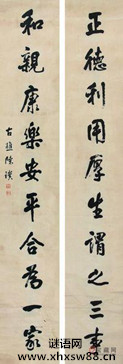 正德利用厚生謂之三事
和親康樂安平合為一家
谜语网
www.xhxsw88.cn